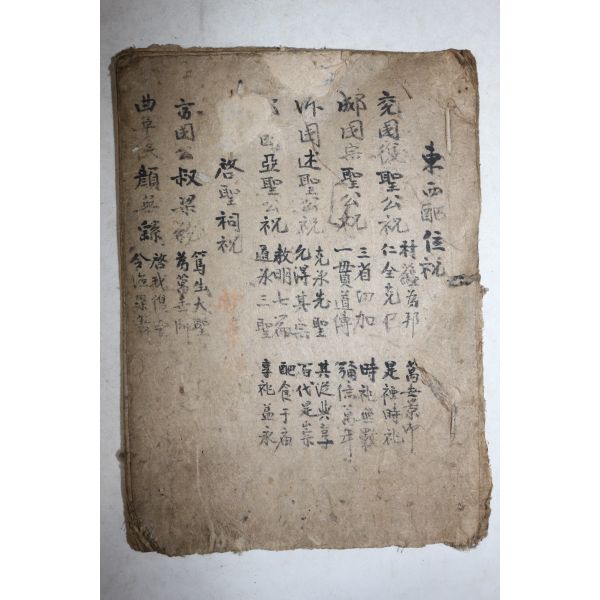 東西配位祝
兗國復聖公祝 材蘊爲邦 萬世景仰
仁全克己 是禋時祀
郕國宗聖公祝 三省功加 時祀無斁
一貫道傳 彌信萬年
沂國述聖公祝 克承先聖 其從與享
允得其宗 百代是崇
國亞聖公祝 敎明七篇 配食于庙
道承三聖 享祀益永
啓聖祠祝
國公叔梁 篤生大聖
爲萬世師
曲阜 顔無繇 啓我復聖